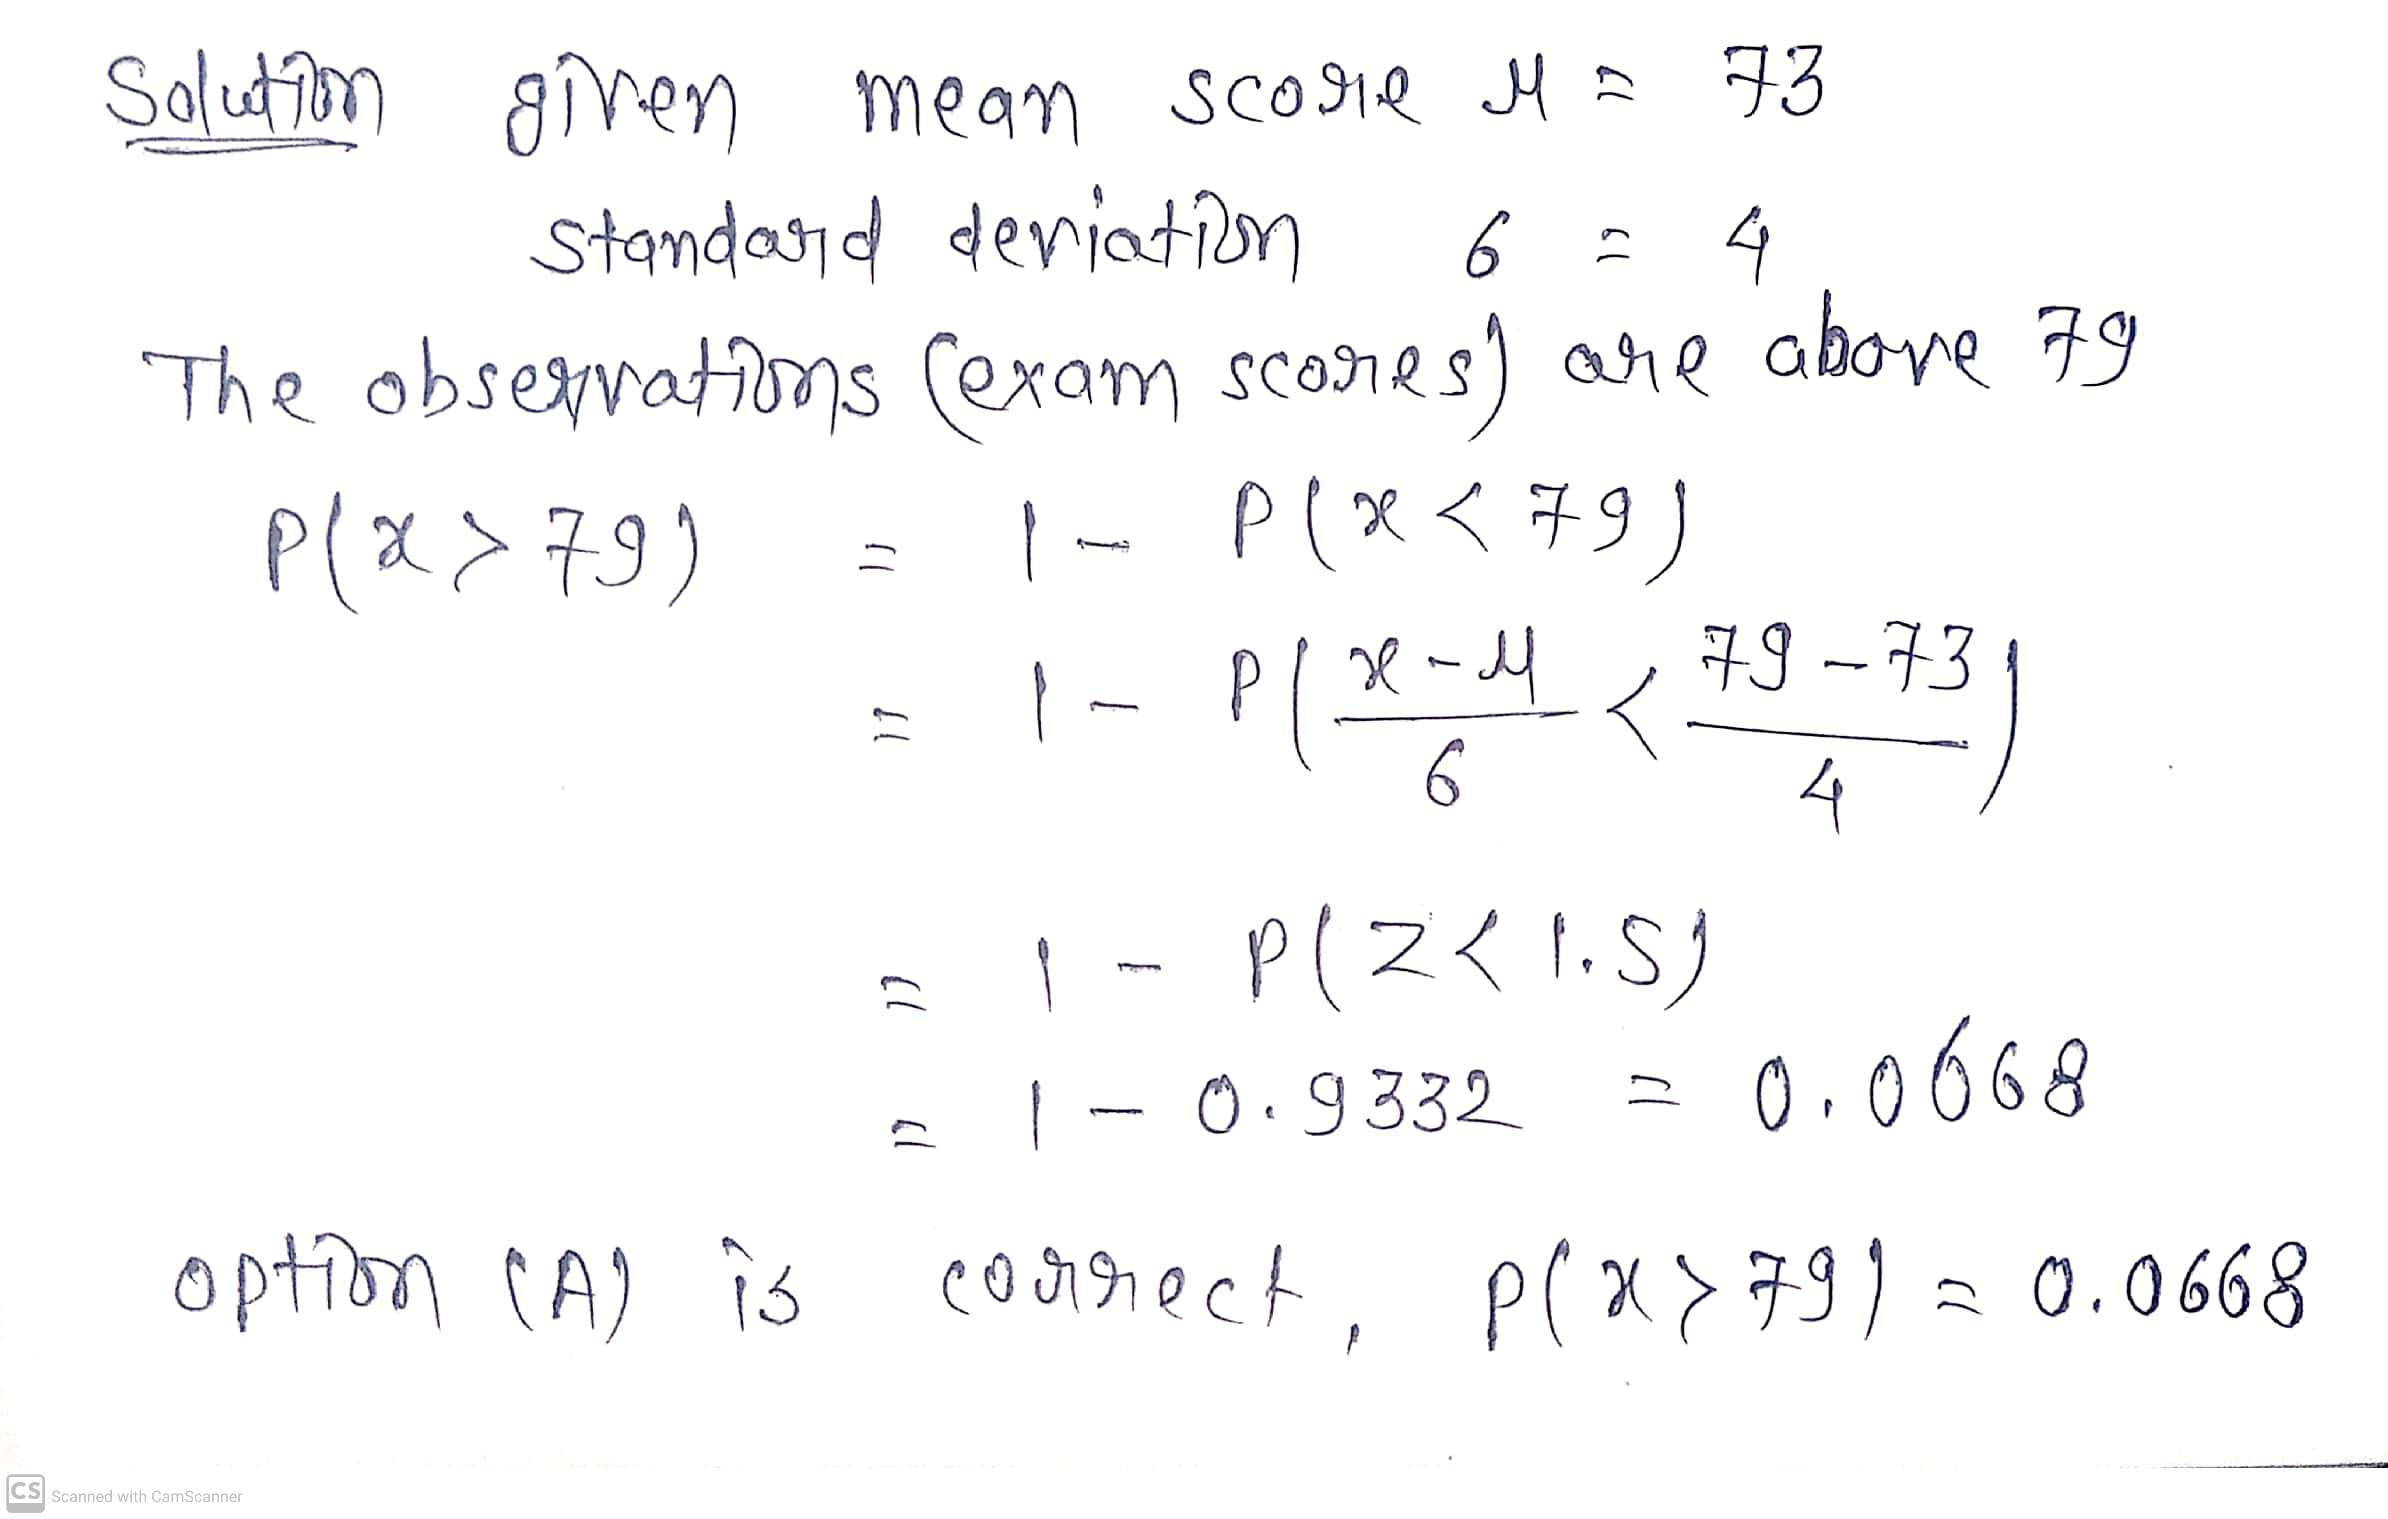 Solution given mean score μ = 73
standard deviation σ = 4
The observations (exam scores) are above 79
P(x > 79) = 1 - P(x < 79)
= 1 - P(x - μ / σ < 79 - 73 / 4)
= 1 - P(Z < 1.5)
= 1 - 0.9332 = 0.0668
option (A) is correct, P(x > 79) = 0.0668
CS Scanned with CamScanner